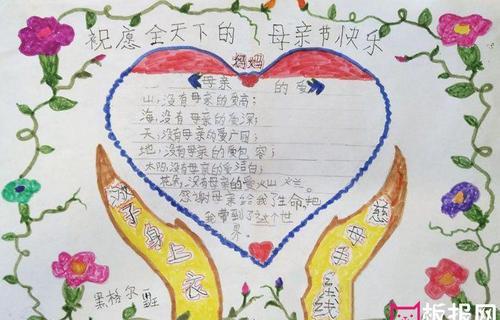 祝愿全天下的母亲节快乐
妈妈
母亲 的爱
山,没有母亲的爱高;
海,没有母亲的爱深;
天,没有母亲的爱广阔;
地,没有母亲的爱包容;
太阳,没有母亲的爱洁白;
花朵,没有母亲的爱灿烂。
感谢母亲给我了生命,把
我带到了这个世
界。
游子身上衣
慈母手中线
黑格尔 班
板报网